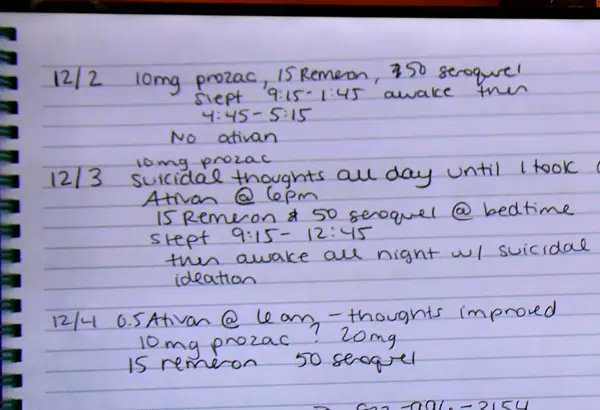 12/2 10mg prozac, 15 Remeron, 50 seroquel
slept 9:15-1:45 awake then
4:45-5:15
No ativan
10mg prozac
12/3 suicidal thoughts all day until I took
Ativan @ 6pm
15 Remeron & 50 seroquel @ bedtime
slept 9:15-12:45
then awake all night w/ suicidal
ideation
12/4 0.5 Ativan @ 6am - thoughts improved
10mg prozac ? 20mg
15 remeron 50 seroquel
-2154